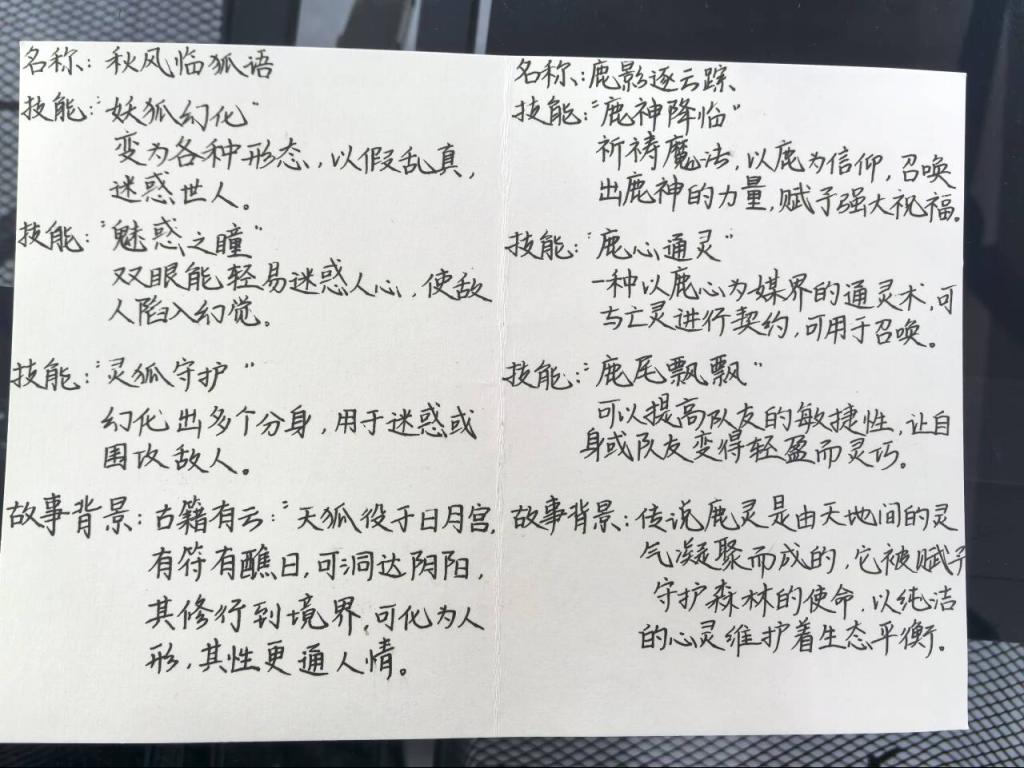 名称：秋风临狐语
技能："妖狐幻化"
变为各种形态，以假乱真，
迷惑世人。
技能："魅惑之瞳"
双眼能轻易迷惑人心，使敌
人陷入幻觉。
技能："灵狐守护"
幻化出多个分身，用于迷惑或
围攻敌人。
故事背景：古籍有云："天狐役于日月宫，
有符有醮日，可洞达阴阳，
其修行到境界，可化为人
形，其性更通人情。
名称：鹿影逐云踪
技能："鹿神降临"
祈祷魔法，以鹿为信仰，召唤
出鹿神的力量，赋予强大祝福。
技能："鹿心通灵"
一种以鹿心为媒界的通灵术，可
与亡灵进行契约，可用于召唤。
技能："鹿尾飘飘"
可以提高队友的敏捷性，让自
身或队友变得轻盈而灵巧。
故事背景：传说鹿灵是由天地间的灵
气凝聚而成的，它被赋予
守护森林的使命，以纯洁
的心灵维护着生态平衡。